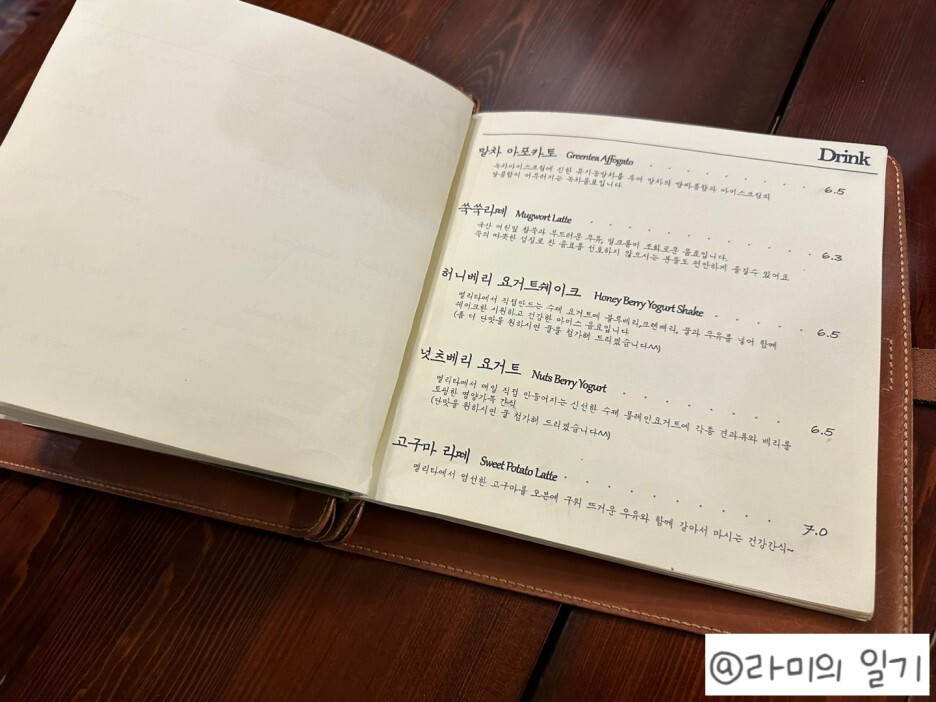 Drink
말차 아포카토 Greentea Affogato 6.5
녹차아이스크림에 진한 유기농말차를 부어 말차의 쌉싸름함과 아이스크림의
달콤함이 어우러지는 녹차음료입니다
쑥쑥라떼 Mugwort Latte 6.3
국산 어린잎 참쑥과 부드러운 우유, 밀크폼이 조화로운 음료입니다.
쑥의 따뜻한 성질로 찬 음료를 선호하지 않으시는 분들도 편안하게 즐길수 있어요
허니베리 요거트쉐이크 Honey Berry Yogurt Shake 6.5
멜리타에서 직접만드는 수제 요거트에 블루베리,크랜베리, 꿀과 우유를 넣어 함께
쉐이크한 시원하고 건강한 아이스 음료입니다
(좀 더 단맛을 원하시면 꿀을 첨가해 드리겠습니다^^)
넛츠베리 요거트 Nuts Berry Yogurt 6.5
멜리타에서 매일 직접 만들어지는 신선한 수제 플레인요거트에 각종 견과류와 베리를
토핑한 영양가득 간식
(단맛을 원하시면 꿀 첨가해 드리겠습니다^^)
고구마 라떼 Sweet Potato Latte 7.0
멜리타에서 엄선한 고구마를 오븐에 구워 뜨거운 우유와 함께 갈아서 마시는 건강간식~
@라미의 일기